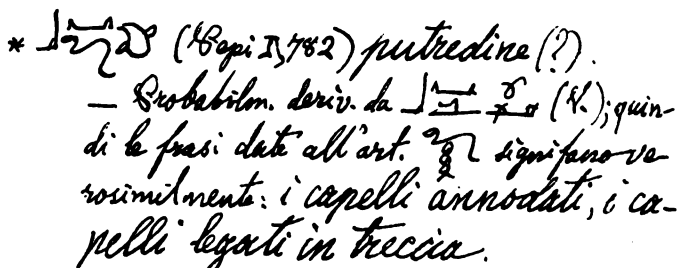 * (Pepi I, 782) putredine (?).
— Probabilm. deriv. da (V.); quin-
di le frasi date all'art. significano ve-
rosimilmente: i capelli annodati, i ca-
pelli legati in treccia.